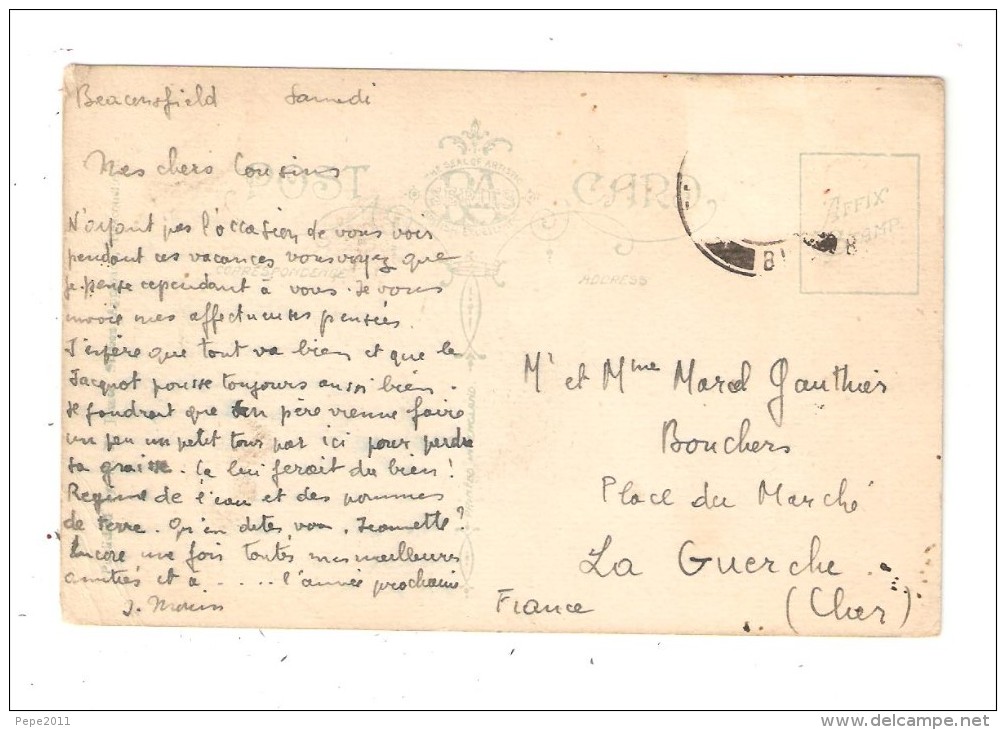 Beaconsfield Samedi
Mes chers Cousins
POST CARD
N'ayant pas l'occasion de vous voir
pendant ces vacances vous voyez que
je pense cependant à vous. Je vous
envoie mes affectueuses pensées.
J'espère que tout va bien et que le
Jacquot pousse toujours aussi bien.
Il faudrait que son père vienne faire
un peu un petit tour par ici pour perdre
sa graisse. Ca lui ferait du bien!
Regime de l'eau et des pommes
de terre. Qu'en dites vous, Jeannette?
Encore une fois toutes mes meilleures
amitiés et à ..... l'année prochaine
J.
CORRESPONDENCE
ADDRESS
AFFIX
STAMP
Mr et Mme Marcel Gauthier
Bouchers
Place du Marché
La Guerche
(Cher)
France
Pepe2011
www.delcampe.net